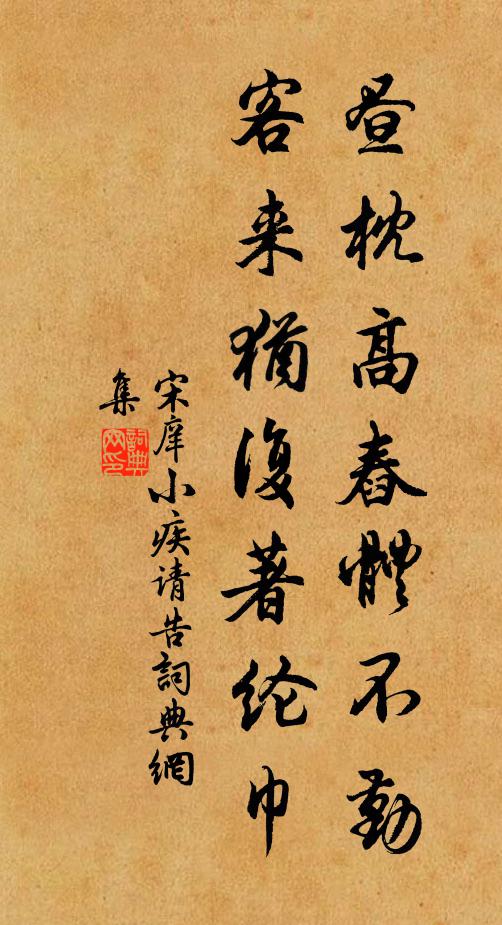 昼枕高舂體不勤
客来猶復著纶巾
宋庠小疾请告詞典網
集
詞典網印